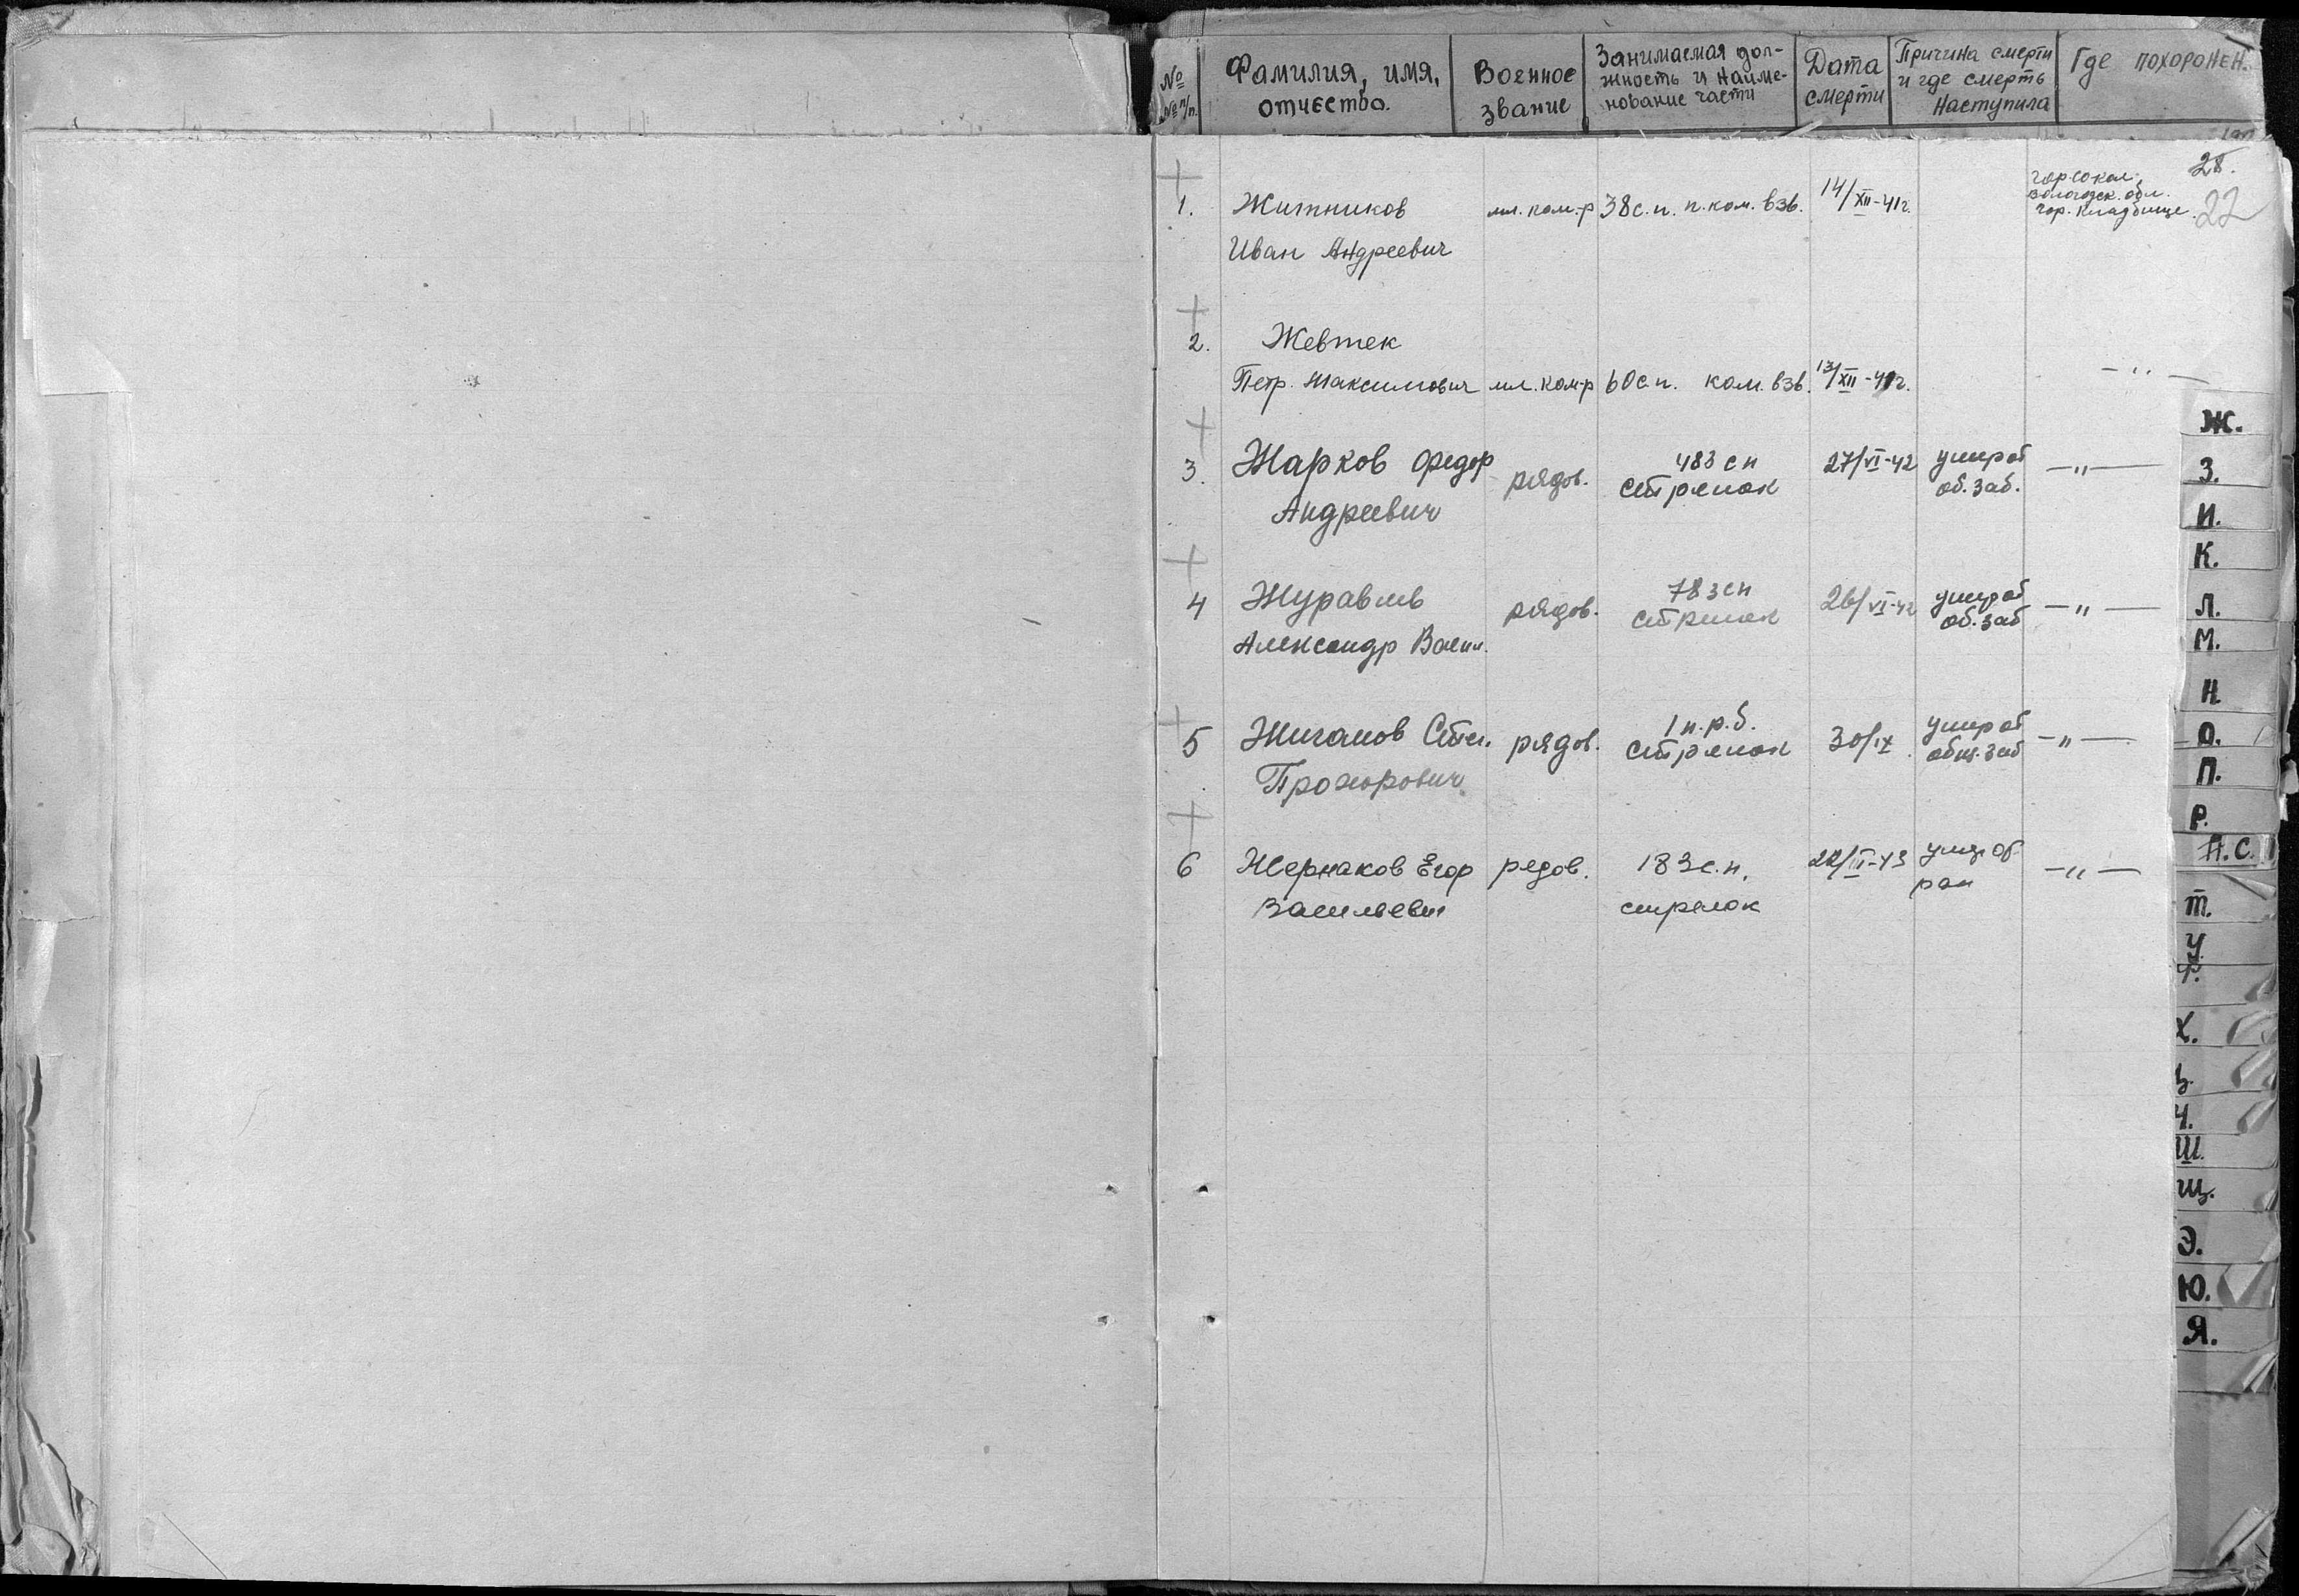 № № п/п.
Фамилия, имя, отчество.
Военное звание
Занимаемая должность и наименование части
Дата смерти
Причина смерти и где смерть наступила
Где похоронен.
28.
22
1. Житников мл. ком-р 38 с.п. п. ком. взв. 14/XII-41г. гор. Сокол, Вологодск. обл. гор. кладбище
Иван Андреевич
2. Жевтек
Петр Максимович мл. ком-р 60 с.п. ком. взв. 13/XII-41г. —"—
3. Жарков Федор рядов. 483 сп 27/VI-42 умер от —"—
Андреевич стрелок об. заб.
4 Журавлев рядов. 783 сп 26/VI-42 умер от —"—
Александр Васил. стрелок об. заб
5 Жиганов Степ. рядов. 1 п.р.б. 30/IX умер от —"—
Прохорович стрелок общ. заб
6 Жернаков Егор редов. 183 с.п. 22/II-43 умер от —"—
Васильевич стрелок ран
Ж.
З.
И.
К.
Л.
М.
Н.
О.
П.
Р.
С.
Т.
У.
Ф.
Х.
Ц.
Ч.
Ш.
Щ.
Э.
Ю.
Я.